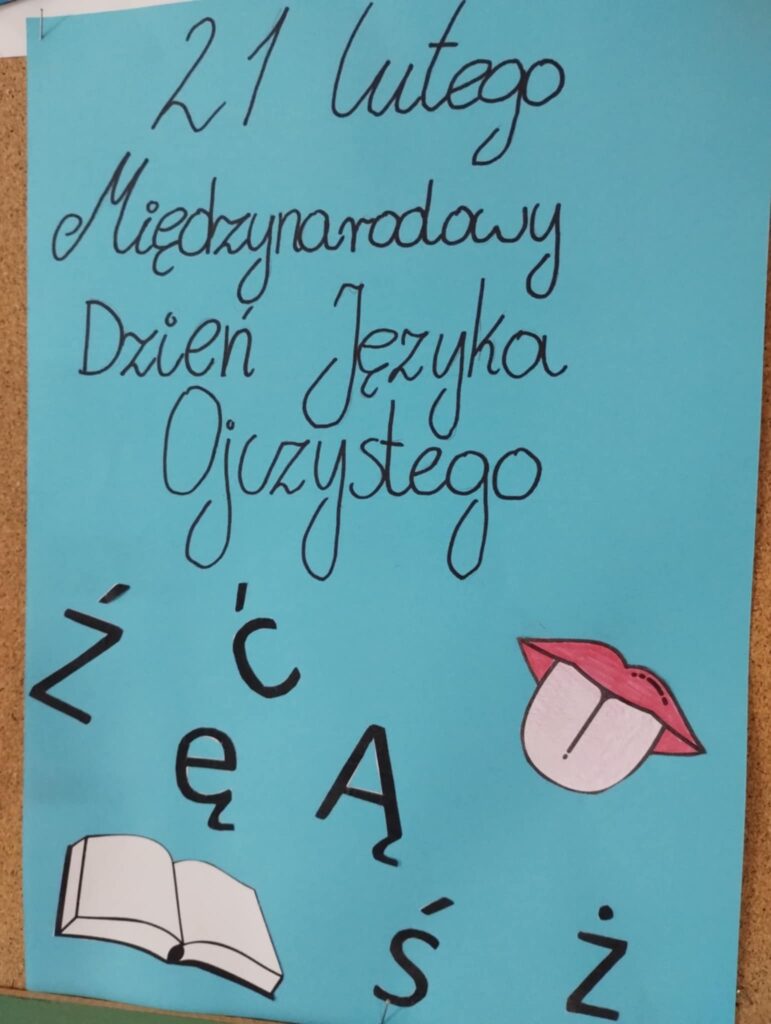 21 lutego
Międzynarodowy
Dzień Języka
Ojczystego
Ź ć
ę Ą
ś ż